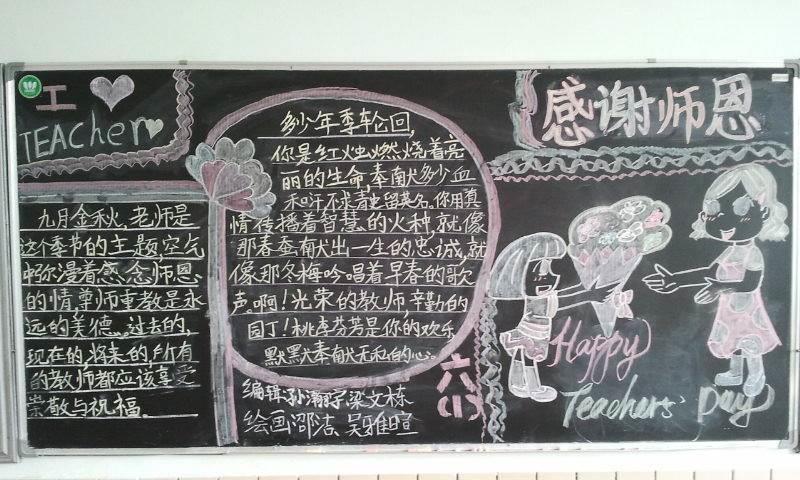 I
TEACher
感谢师恩
多少年季轮回,
你是红烛燃烧着亮
丽的生命,奉献多少血
和汗不求青史留英名.你用真
情传播着智慧的火种.就像
那春蚕献出一生的忠诚,就
像那冬梅吟唱着早春的歌
声.啊!光荣的教师,辛勤的
园丁!桃李芬芳是你的欢乐
默默奉献无私的心.
九月金秋,老师是
这个季节的主题,空气
中弥漫着感念师恩
的情尊师重教是永
远的美德.过去的,
现在的,将来的,所有
的教师都应该享受
崇敬与祝福.
编辑孙瀚宇梁文栋
绘画邵洁、吴雅暄
六
(1)
Happy
Teachers' Day